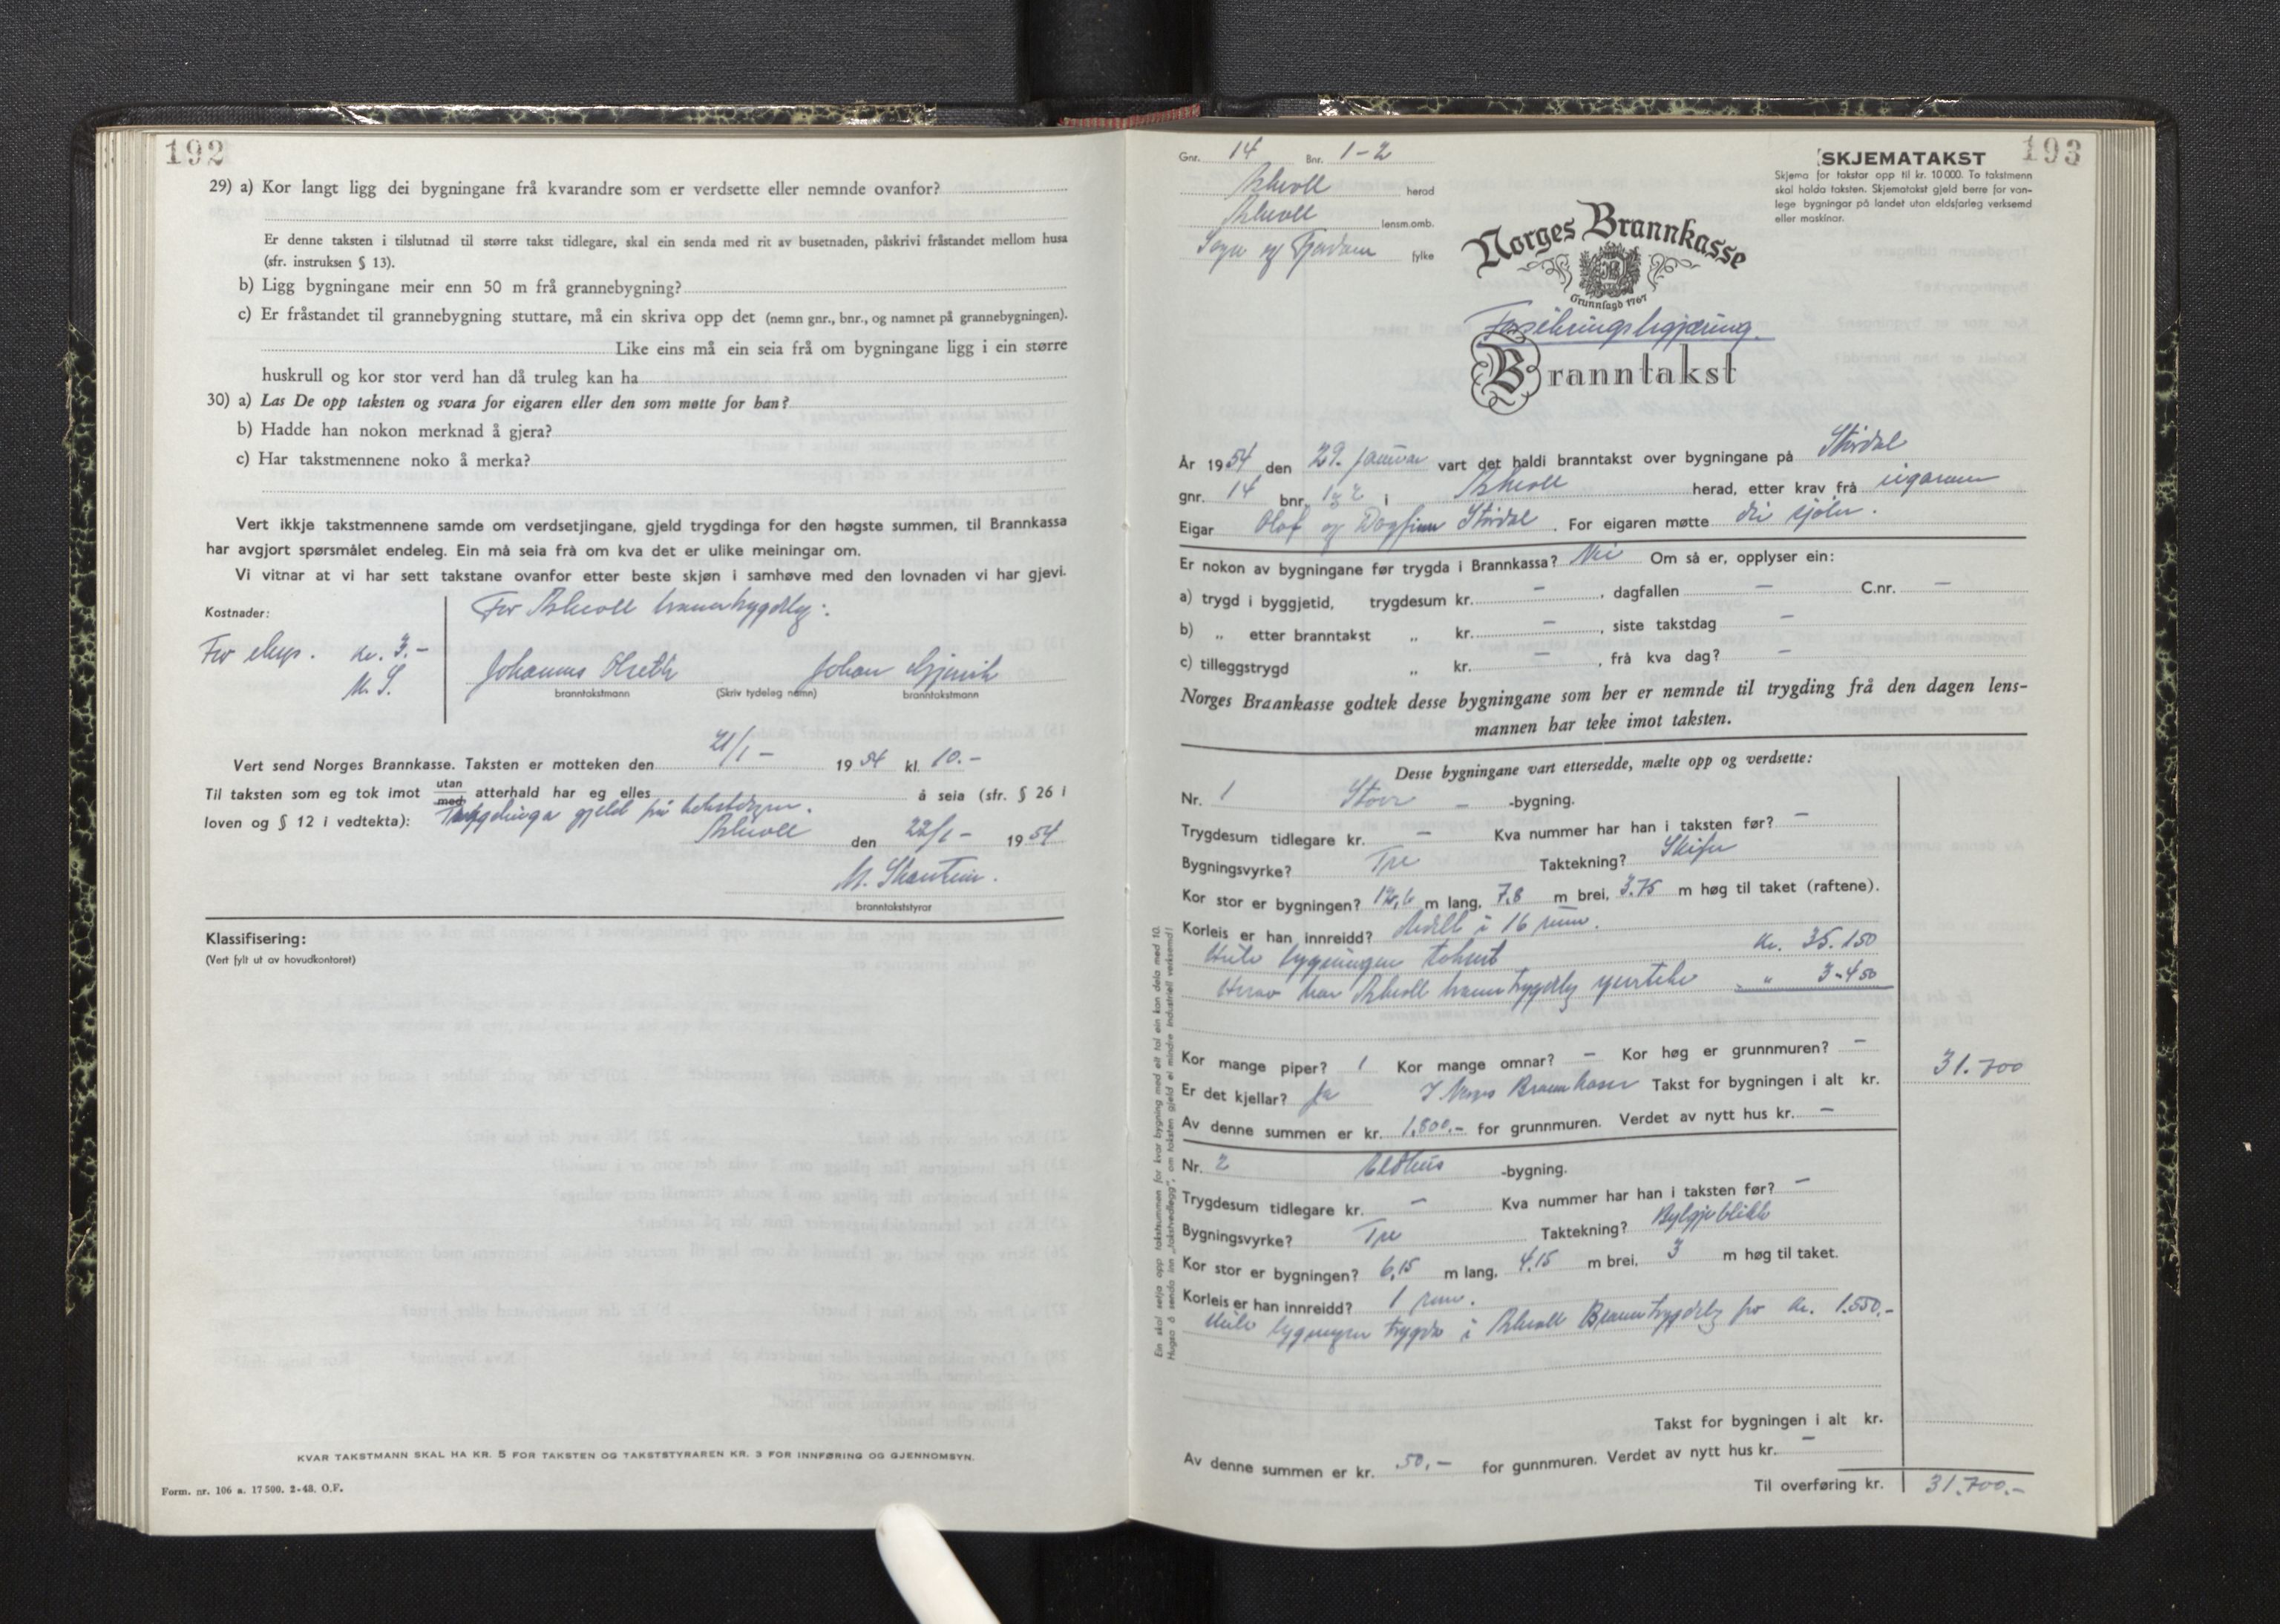 192
29) a) Kor langt ligg dei bygningane frå kvarandre som er verdsette eller nemnde ovanfor?
Er denne taksten i tilslutnad til større takst tidlegare, skal ein senda med rit av busetnaden, påskrivi fråstandet mellom husa
(sfr. instruksen § 13).
b) Ligg bygningane meir enn 50 m frå grannebygning?
c) Er fråstandet til grannebygning stuttare, må ein skriva opp det (nemn gnr., bnr., og namnet på grannebygningen).
Like eins må ein seia frå om bygningane ligg i ein større
huskrull og kor stor verd han då truleg kan ha
30) a) Las De opp taksten og svara for eigaren eller den som møtte for han?
b) Hadde han nokon merknad å gjera?
c) Har takstmennene noko å merka?
Vert ikkje takstmennene samde om verdsetjingane, gjeld trygdinga for den høgste summen, til Brannkassa
har avgjort spørsmålet endeleg. Ein må seia frå om kva det er ulike meiningar om.
Vi vitnar at vi har sett takstane ovanfor etter beste skjøn i samhøve med den lovnaden vi har gjevi.
Kostnader:
For Askvoll branntrygdelag:
For eksp. kr. 3.-
M. S.
Johannes Johan
branntakstmann (Skriv tydeleg namn) branntakstmann
Vert send Norges Brannkasse. Taksten er motteken den 21/1 - 1954 kl. 10.-
Til taksten som eg tok imot utan med atterhald har eg elles å seia (sfr. § 26 i
loven og § 12 i vedtekta): Trygdinga gjeld frå takstdagen.
Askvoll den 22/1 - 1954
M.
branntakststyrar
Klassifisering:
(Vert fylt ut av hovudkontoret)
KVAR TAKSTMANN SKAL HA KR. 5 FOR TAKSTEN OG TAKSTSTYRAREN KR. 3 FOR INNFØRING OG GJENNOMSYN.
Form. nr. 106 a. 17 500. 2-48. O.F.
193
Gnr. 14 Bnr. 1-2
Askvoll herad
Askvoll lensm.omb.
Sogn og Fjordane fylke
SKJEMATAKST
Skjema for takstar opp til kr. 10 000. To takstmenn
skal halda taksten. Skjematakst gjeld berre for van-
lege bygningar på landet utan eldsfarleg verksemd
eller maskinar.
Norges Brannkasse
Grunnlagd 1767
Forsikringsbegjæring.
Branntakst
År 1954 den 29. januar vart det haldi branntakst over bygningane på Stórdal
gnr. 14 bnr. 1 og 2 i Askvoll herad, etter krav frå eigarane
Eigar Olaf og Dagfinn Stórdal. For eigaren møtte dei sjølv.
Er nokon av bygningane før trygda i Brannkassa? Nei Om så er, opplyser ein:
a) trygd i byggjetid, trygdesum kr. - , dagfallen - C.nr. -
b) „ etter branntakst „ kr. - , siste takstdag -
c) tilleggstrygd „ kr. - , frå kva dag? -
Norges Brannkasse godtek desse bygningane som her er nemnde til trygding frå den dagen lens-
mannen har teke imot taksten.
Desse bygningane vart ettersedde, mælte opp og verdsette:
Nr. 1 Stove - -bygning.
Trygdesum tidlegare kr. - Kva nummer har han i taksten før? -
Bygningsvyrke? Tre Taktekning? Skifer
Kor stor er bygningen? m lang, 7.8 m brei, 3.75 m høg til taket (raftene).
Korleis er han innreidd? Avdelt i 16 rum.
Heile bygningen taksert kr. 35.150
Herav har Askvoll branntrygdelag yverteke " 3.450
Kor mange piper? 1 Kor mange omnar? - Kor høg er grunnmuren? -
Er det kjellar? Ja I Norges Brannkasse Takst for bygningen i alt kr. 31.700
Av denne summen er kr. 1.800.- for grunnmuren. Verdet av nytt hus kr. -
Nr. 2 Eldhus -bygning.
Trygdesum tidlegare kr. - Kva nummer har han i taksten før? -
Bygningsvyrke? Tre Taktekning? Bylgjeblikk
Kor stor er bygningen? 6,15 m lang, 4.15 m brei, 3 m høg til taket.
Korleis er han innreidd? 1 rum.
Heile bygningen trygda i Askvoll Branntrygdelag for kr. 1.550.-
Takst for bygningen i alt kr.
Av denne summen er kr. 50.- for gunnmuren. Verdet av nytt hus kr. -
Til overføring kr. 31.700.-
Ein skal setja opp takstsummen for kvar bygning med eit tal ein kan dela med 10.
Hugsa å senda inn „takstvedlegg", om taksten gjeld ei mindre industriell verksemd!